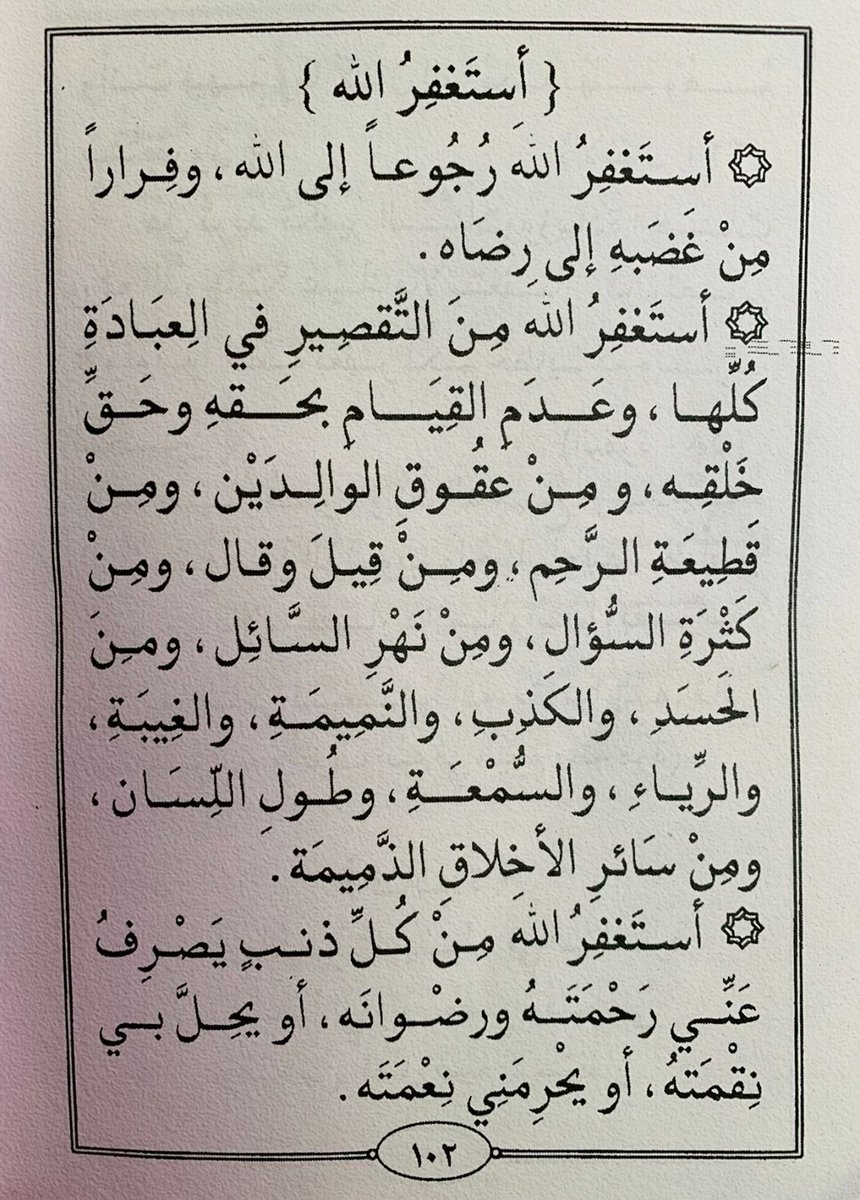 { أستَغفِرُ الله }
أستَغفِرُ اللهَ رُجُوعاً إلى الله، وفِراراً
مِنْ غَضَبهِ إلى رِضَاه.
أستَغفِرُ اللهَ مِنَ التَّقصِيرِ في العِبَادَةِ
كُلِّها، وعَدَمِ القِيَامِ بحَقهِ وحَقِّ
خَلْقِه، و مِنْ عُقُوقِ الوالِدَيْن، ومِنْ
قَطِيعَةِ الرَّحِم، ومِنْ قِيلَ وقال، ومِنْ
كَثْرَةِ السُّؤال، ومِنْ نَهْرِ السَّائِل، ومِنَ
الحَسَدِ، والكَذِبِ، والنَّمِيمَةِ، والغِيبَةِ،
والرِّياءِ، والسُّمْعَةِ، وطُولِ اللِّسَان،
ومِنْ سَائرِ الأخلاقِ الذَّمِيمَة.
أستَغفِرُ اللهَ مِنْ كُلِّ ذنبٍ يَصْرِفُ
عَنِّي رَحْمَتَهُ ورضْوانَه، أو يحِلَّ بي
نِقْمَتهُ، أو يحْرِمَنِي نِعْمَتَه.
١٠٢